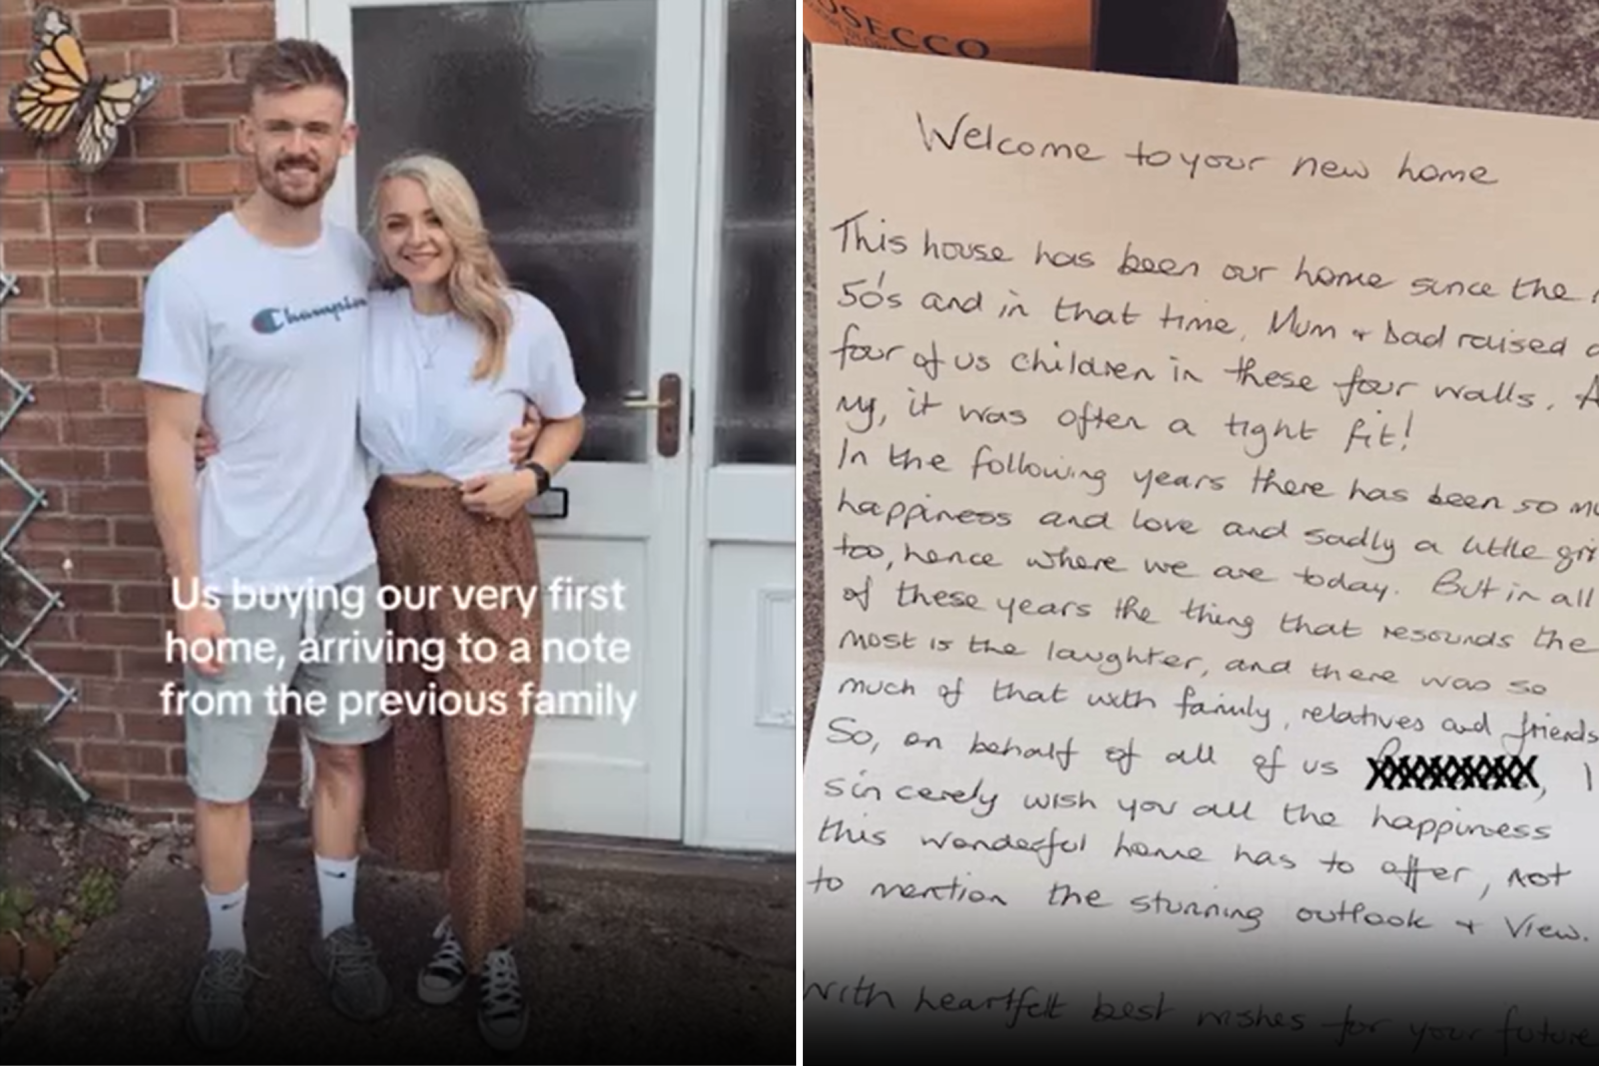 Champion
Us buying our very first
home, arriving to a note
from the previous family
OSECCO
Welcome to your new home
This house has been our home since the
50's and in that time, Mum + Dad raised
four of us children in these four walls.
ny, it was often a tight fit!
In the following years there has been so
happiness and love and sadly a little
too, hence where we are today. But in all
of these years the thing that resounds the
most is the laughter, and there was so
much of that with family, relatives and friends
So, on behalf of all of us , I
sincerely wish you all the happiness
this wonderful home has to offer, not
to mention the stunning outlook + view.
With heartfelt best wishes for your future